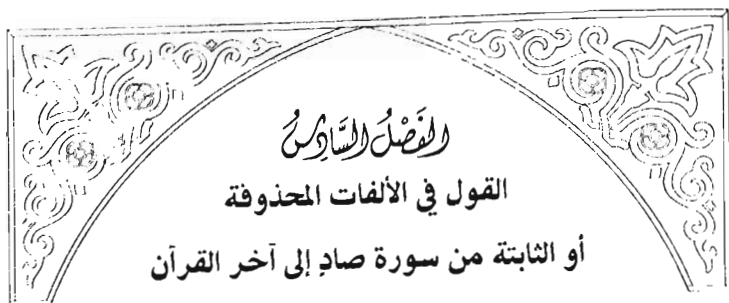 الفَصْلُ السَّادِسُ
القول في الألفات المحذوفة
أو الثابتة من سورة صادِ إلى آخر القرآن